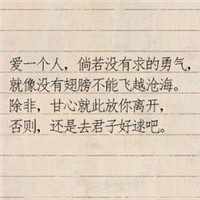 爱一个人，倘若没有求的勇气，
就像没有翅膀不能飞越沧海。
除非，甘心就此放你离开，
否则，还是去君子好逑吧。